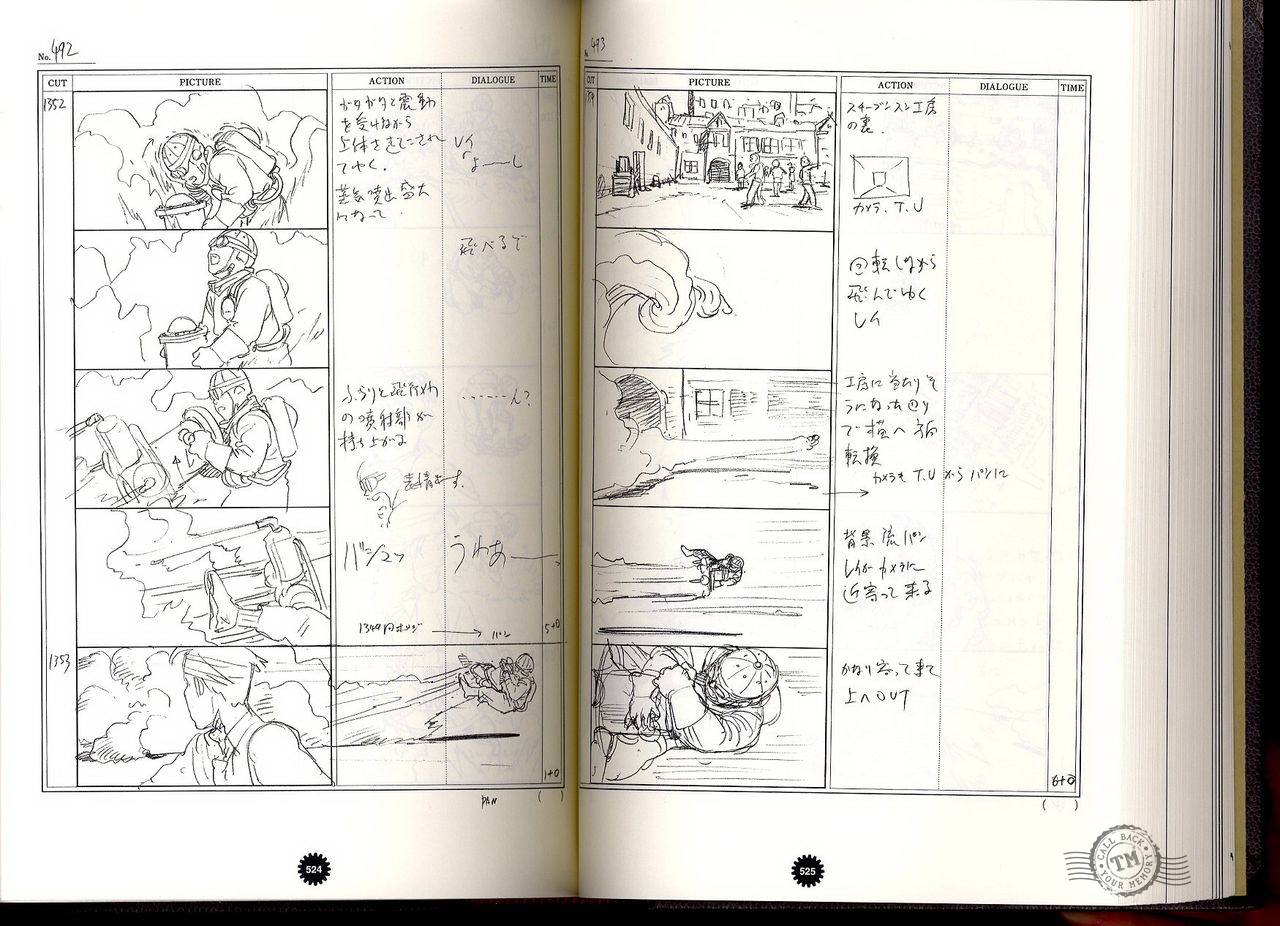 No. 492
CUT PICTURE ACTION DIALOGUE TIME
1352
ガタガタと震動
を受けながら
てゆく。
レイ
「よーーし
蒸気噴出盛大
になって.
飛べるぞ
ふらりと飛行メカ
の噴射部が
持ち上がる
・・・・・・・ん?
表情出す.
バシュッ
うわあーー
1349 パン
5+0
1353
1+0
PAN
( )
524
No. 493
CUT PICTURE ACTION DIALOGUE TIME
スチーブンスン工房
の裏.
カメラ. T.U
回転しながら
飛んでゆく
レイ
工房に当たりそ
うになった辺り
で横へ方向
転換
カメラも T.U からパンに
背景流パン
レイがカメラに
近寄って来る
かなり寄って来て
上へOUT
6+0
( )
525
CALL BACK
TM
YOUR MEMORY